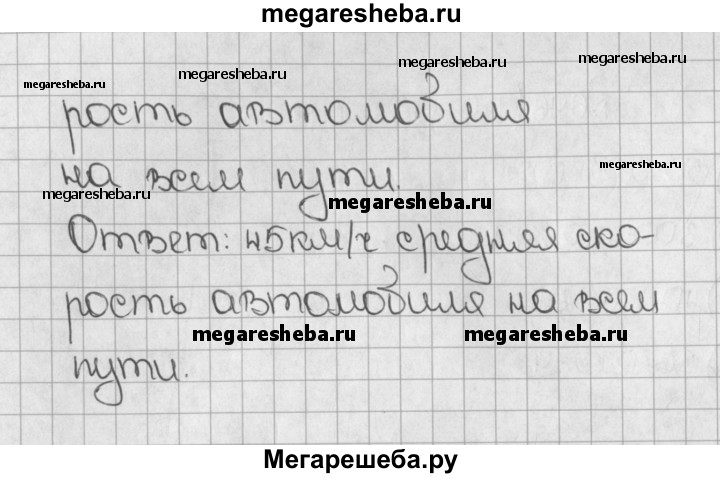 megaresheba.ru
megaresheba.ru
megaresheba.ru
megaresheba.ru
рость автомобиля
megaresheba.ru
на всем пути.
megaresheba.ru
megaresheba.ru
Ответ: 45км/ч средняя ско-
рость автомобиля на всем
megaresheba.ru
megaresheba.ru
пути.
Мегарешеба.ру